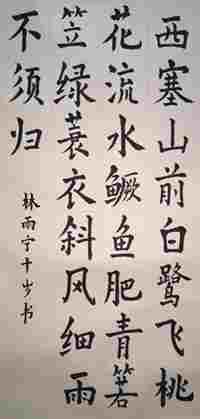 西塞山前白鹭飞桃
花流水鳜鱼肥青箬
笠绿蓑衣斜风细雨
不须归
林雨宁十岁书